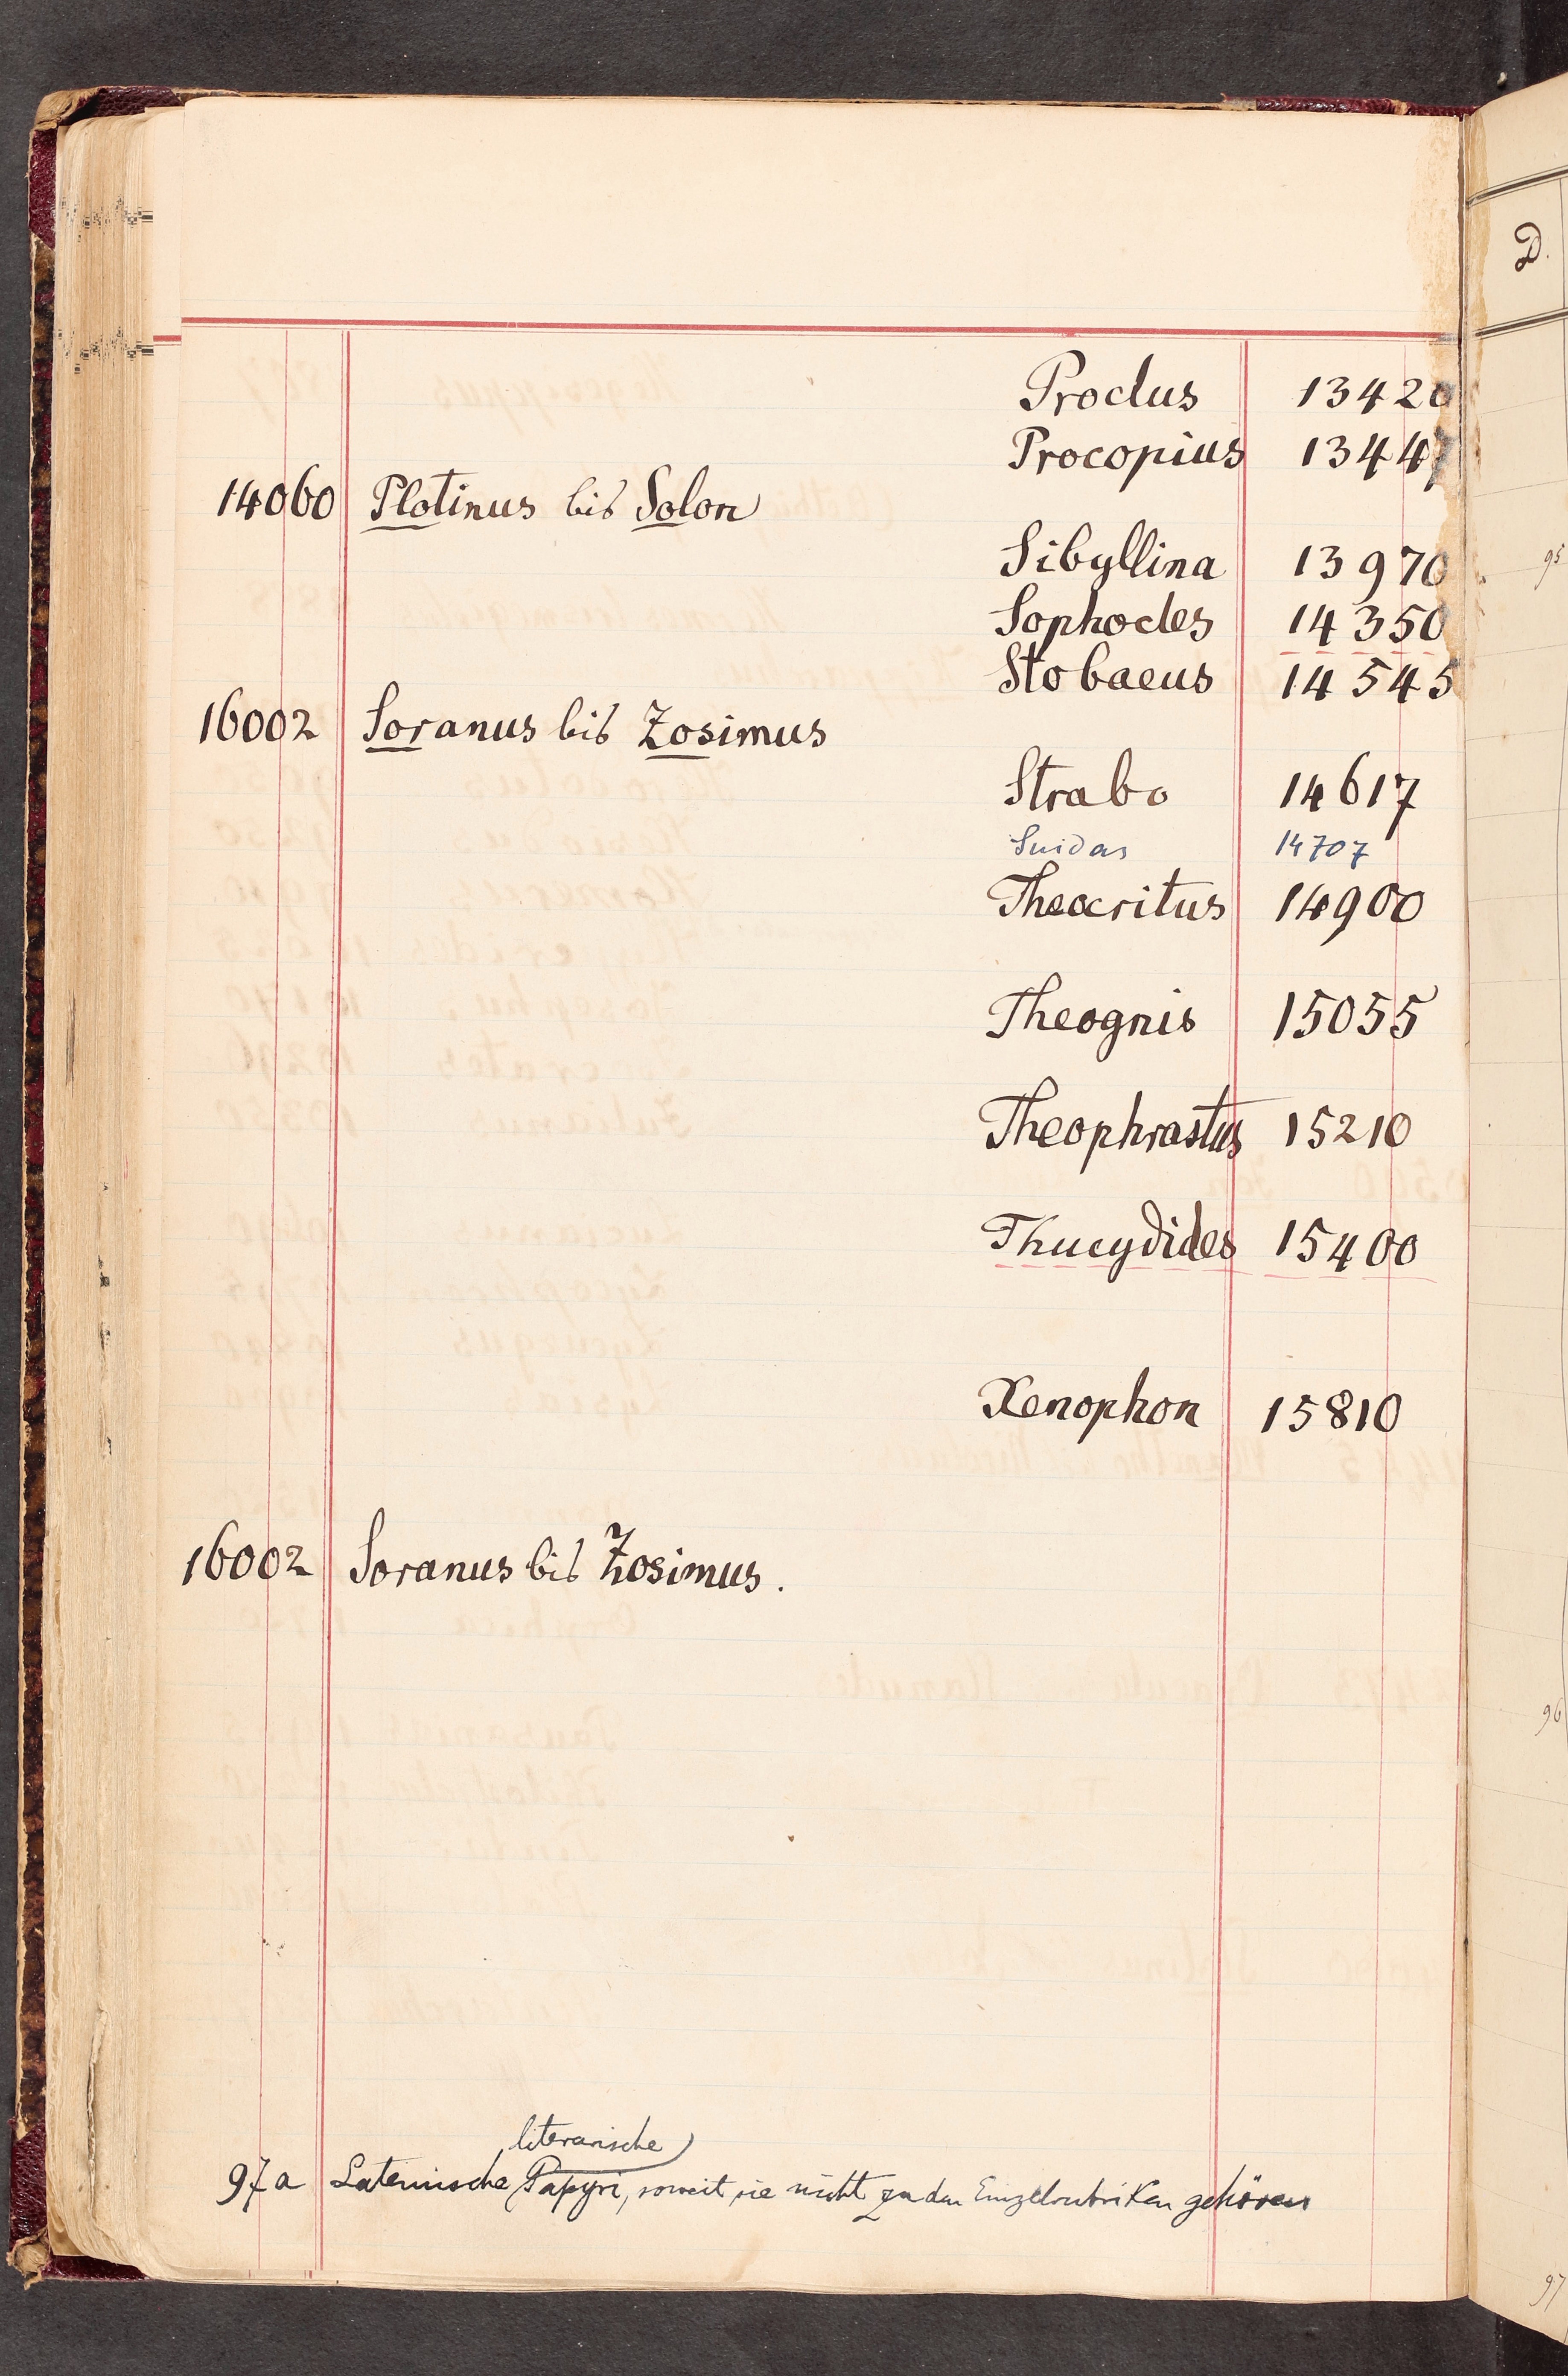 D.
Proclus 13420
Procopius 13447
14060 Plotinus bis Solon
Sibyllina 13970
95
Sophocles 14350
Stobaeus 14545
16002 Soranus bis Zosimus
Strabo 14617
Suidas 14707
Theocritus 14900
Theognis 15055
Theophrastus 15210
Thucydides 15400
Xenophon 15810
16002 Soranus bis Zosimus.
96
literarische
97a Lateinische Papyri, soweit sie nicht zu den Einzelrubriken gehören
97